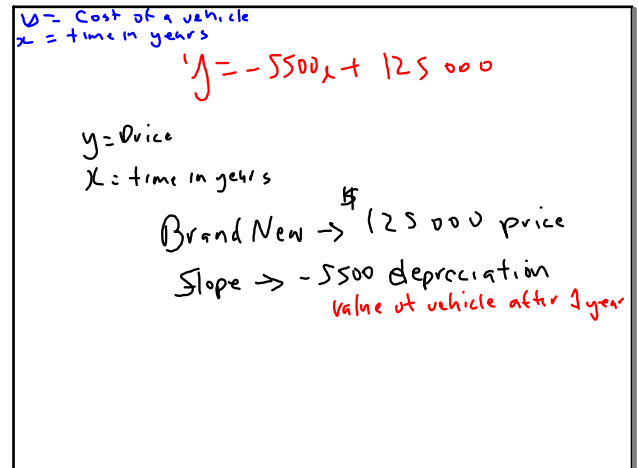 y = Cost of a vehicle
x = time in years
y = -5500x + 125 000
y = Price
x = time in years
Brand New → $125 000 price
Slope → -5500 depreciation
value of vehicle after 1 year